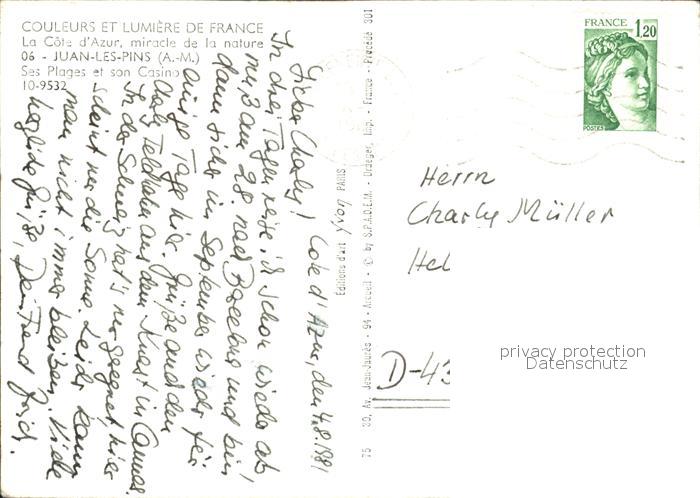 COULEURS ET LUMIÈRE DE FRANCE
La Côte d'Azur, miracle de la nature
06 - JUAN-LES-PINS (A.-M.)
Ses Plages et son Casino
10-9532
Côte d'Azur, den 4.8.1981
Lieber Charly!
In drei Tagen reise ich schon wieder ab,
muß am 28. nach und bin
dann sicher im September wieder für
einige Tage hier. Grüße auch den
Charly auf dem in Cannes.
In der Schweiz hat's nur geregnet, hier
scheint nur die Sonne. Leider kann
man nicht immer bleiben. Viele
herzliche Grüße, Dein Freund
Éditions d'art PARIS
75 30, Av. Jean-Jaurès - 94 - Arcueil - © by S.P.A.D.E.M. - Draeger, Imp. - France - Procédé 301
FRANCE
1,20
POSTES
Herrn
Charly Müller
Hel
D-43
privacy protection
Datenschutz